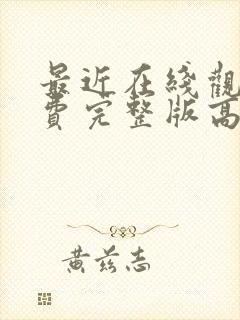 最近在綫觀
費完整版高
黄兹志